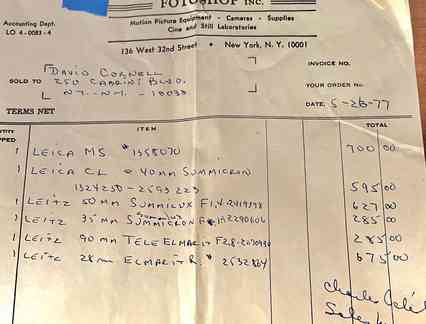 FOTOSHOP INC.
Accounting Dept.
LO 4-0083-4
Motion Picture Equipment - Cameras - Supplies
Cine and Still Laboratories
136 West 32nd Street • New York, N. Y. 10001
INVOICE NO.
SOLD TO DAVID CORNELL
250 CABRINI BLVD.
N.Y. - N.Y. - 10033
YOUR ORDER No.
DATE 5-28-77
TERMS NET
ITEM TOTAL
1 LEICA M5 * 1358070 700 00
1 LEICA CL + 40MM SUMMICRON
1324250 - 2593223 595 00
1 LEITZ 50 MM SUMMILUX F1,4 627 00
1 LEITZ 35 MM SUMMICRON 2290606 285 00
1 LEITZ 90 MM TELE ELMARIT F2,8 285 00
1 LEITZ 28 MM ELMARIT R. * 675 00